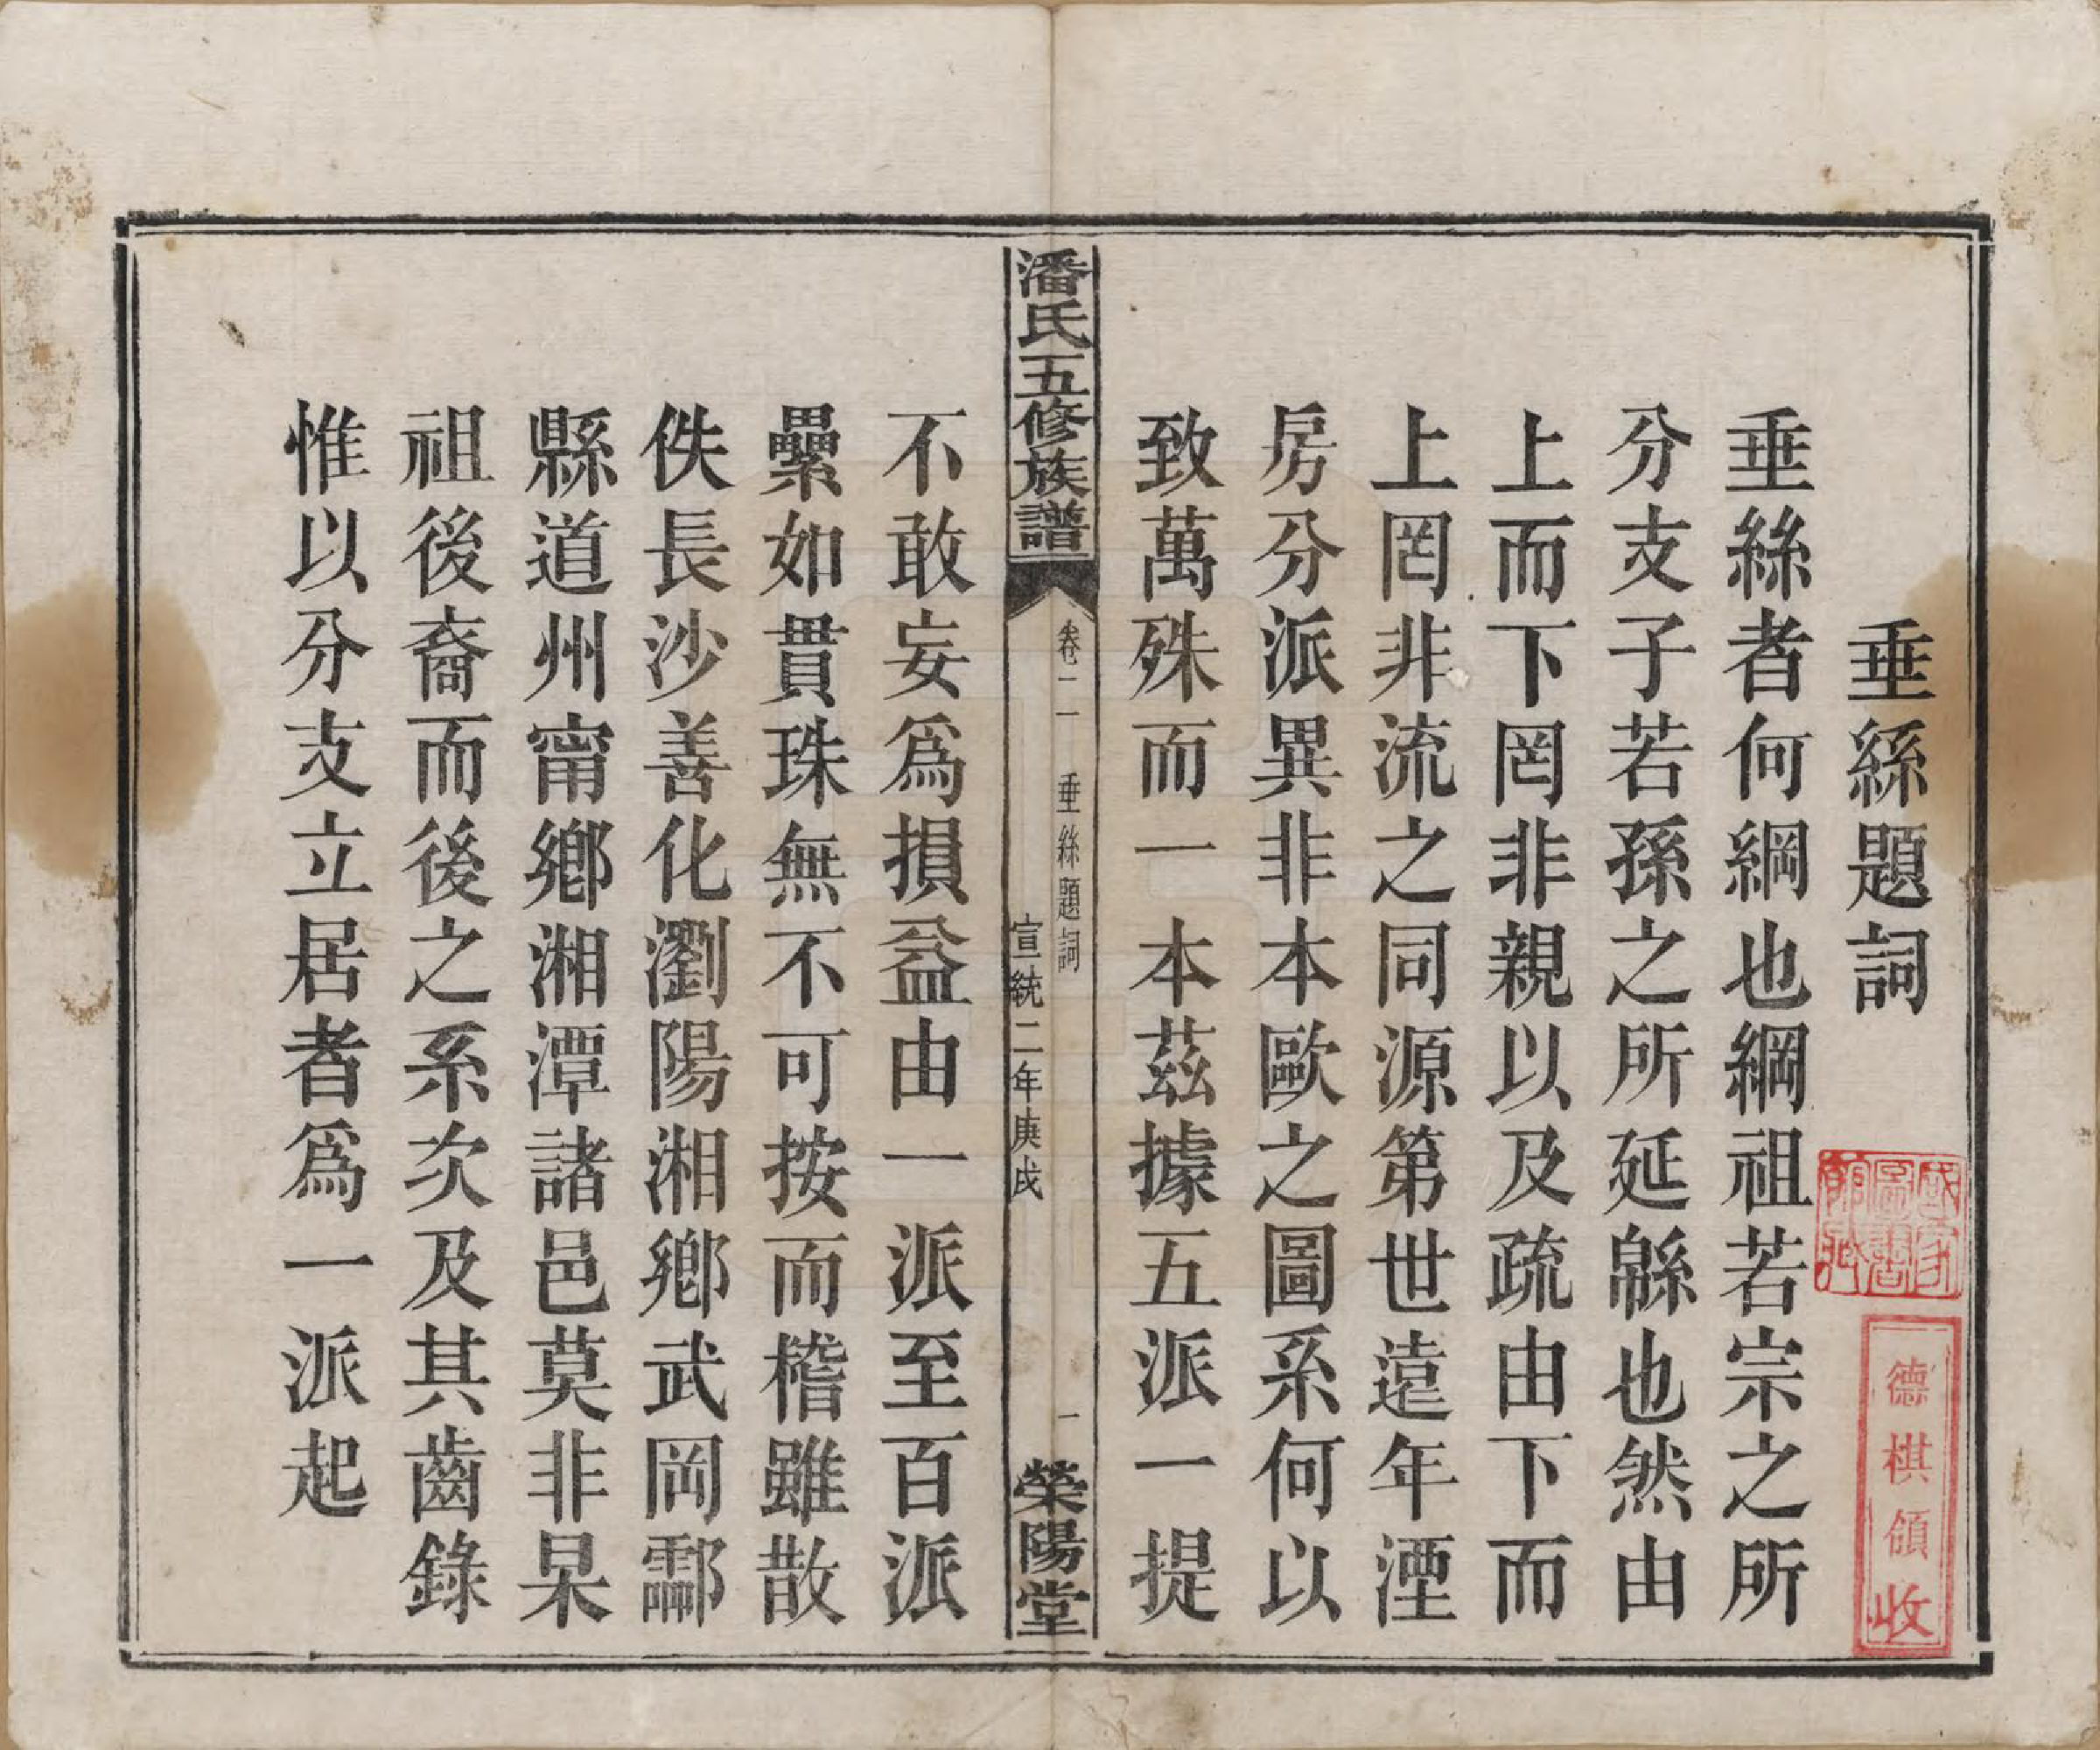 垂絲題詞
垂絲者何綱也綱祖若宗之所
分支子若孫之所延緜也然由
上而下罔非親以及疏由下而
上罔非流之同源第世遠年湮
房分派異非本歐之圖系何以
致萬殊而一本茲據五派一提
潘氏五修族譜
卷二 垂絲題詞
宣統二年庚戌
一
榮陽堂
不敢妄爲損益由一派至百派
纍如貫珠無不可按而稽雖散
佚長沙善化瀏陽湘鄉武岡酃
縣道州甯鄉湘潭諸邑莫非杲
祖後裔而後之系次及其齒錄
惟以分支立居者爲一派起
國家圖書館藏
德棋領收